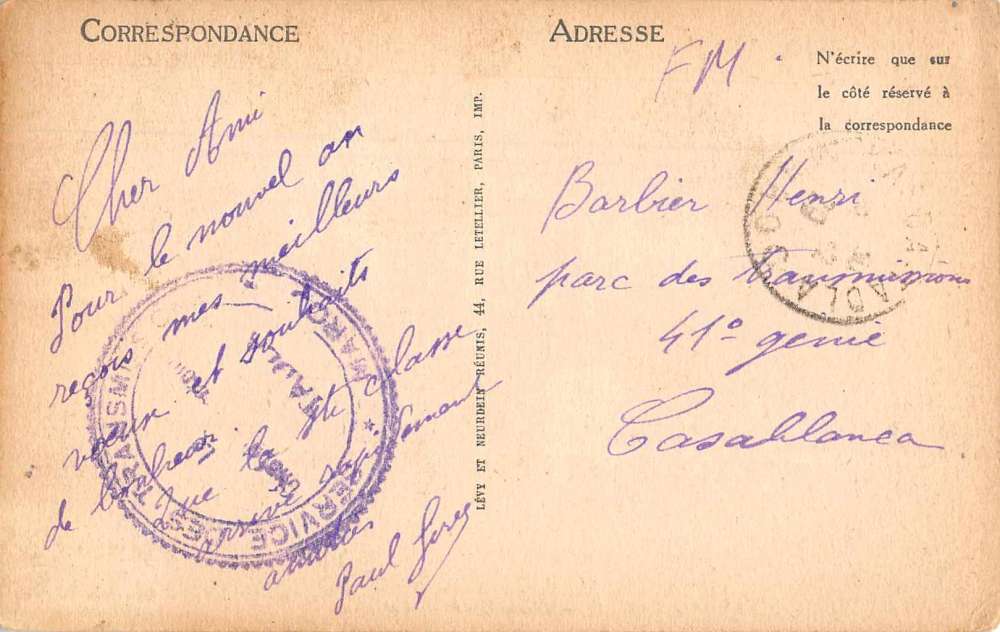 CORRESPONDANCE
Cher Ami
Pour le nouvel an
reçois mes meilleurs
voeux et souhaits
de bonheur
Que la classe
arrive rapidement
amitiés
Paul
SERVICE DES TRANSMISSIONS
MAROC
LÉVY ET NEURDEIN RÉUNIS, 44, RUE LETELLIER, PARIS, IMP.
ADRESSE
FM.
N'écrire que sur
le côté réservé à
la correspondance
Barbier Henri
parc des transmissions
41º genie
Casablanca